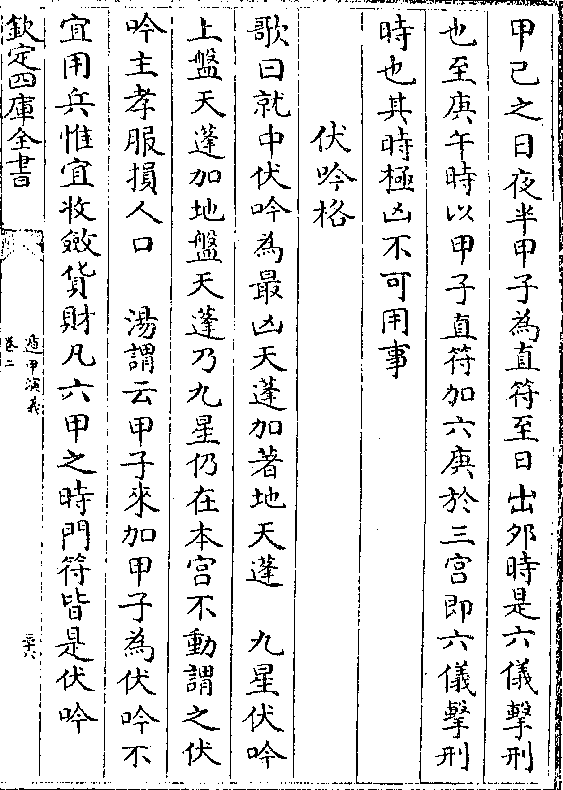 甲己之日夜半甲子為直符至日出夘時是六儀擊刑
也至庚午時以甲子直符加六庚於三宫即六儀擊刑
時也其時極凶不可用事
伏吟格
歌曰就中伏吟為最凶天蓬加著地天蓬　九星伏吟
上盤天蓬加地盤天蓬乃九星仍在本宫不動謂之伏
吟主孝服損人口　湯謂云甲子來加甲子為伏吟不
宜用兵惟宜收斂貨財凡六甲之時門符皆是伏吟
欽定四庫全書
遁甲演義
卷二
三十六